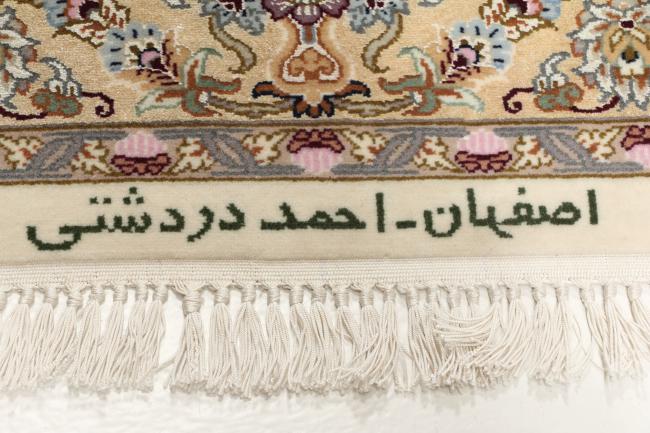 اصفهان - احمد دردشتی